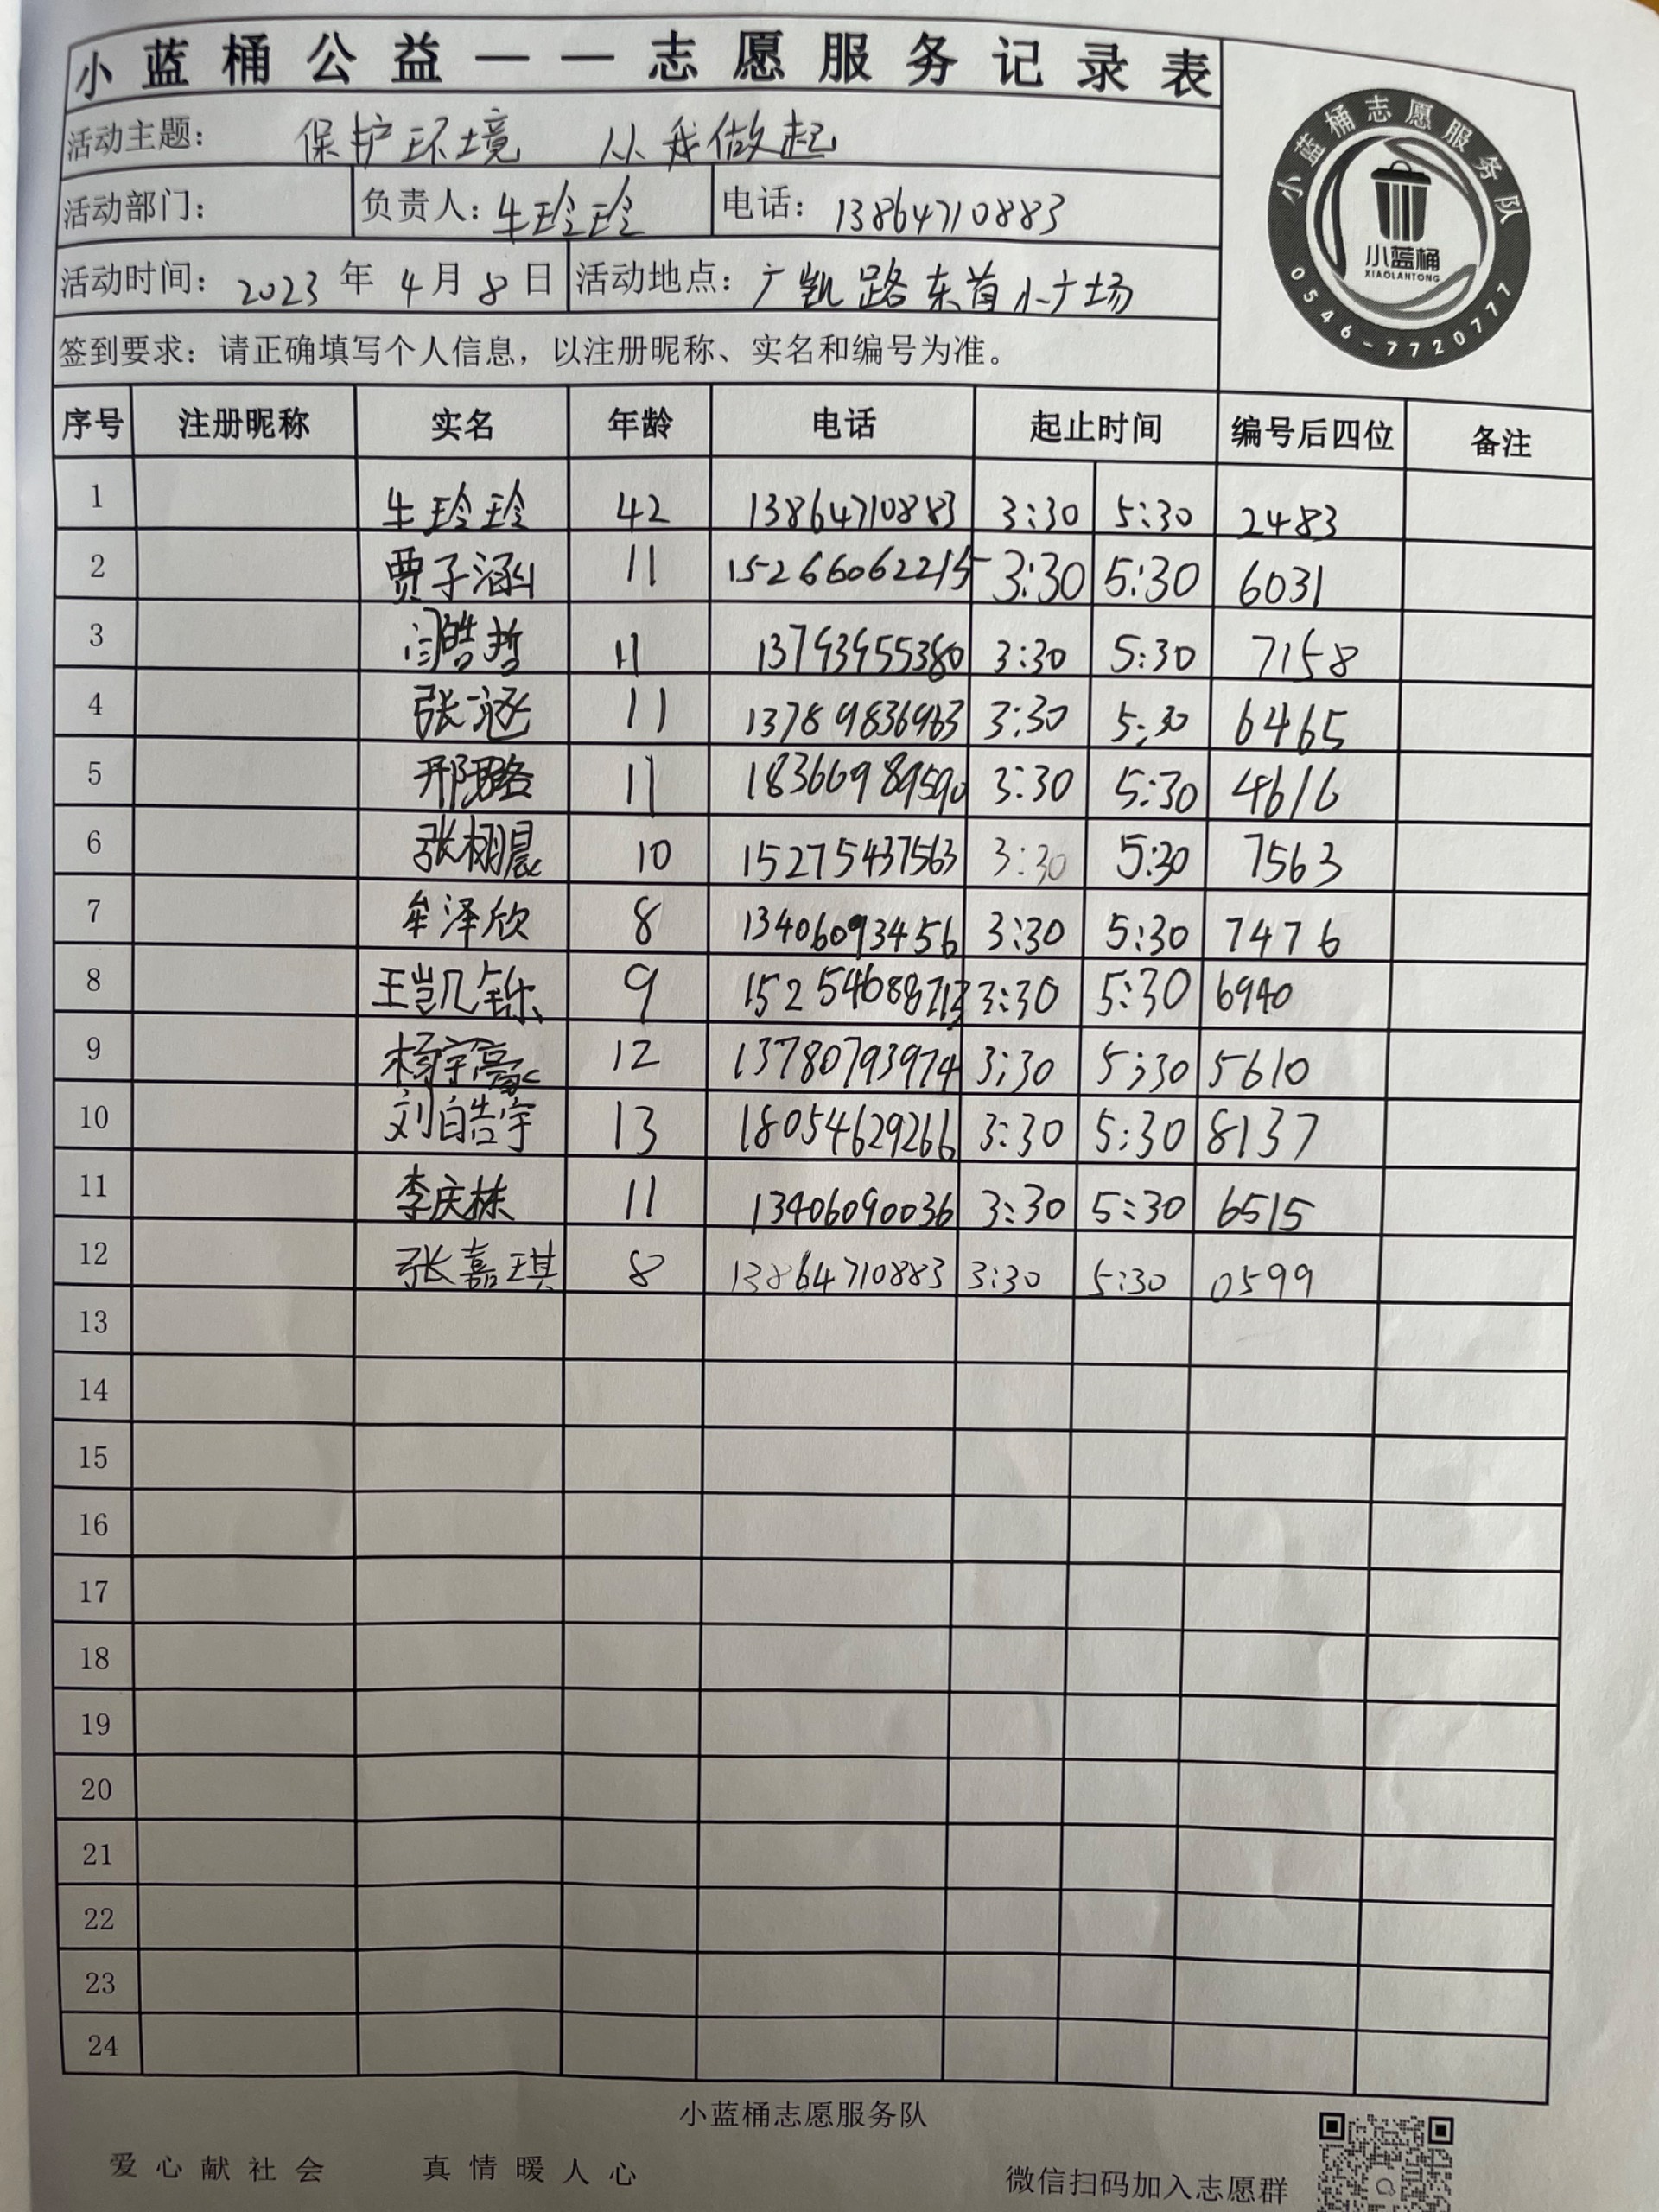 小蓝桶公益——志愿服务记录表
活动主题： 保护环境 从我做起
活动部门： 负责人：牛玲玲 电话：13864710883
活动时间：2023年4月8日 活动地点：广凯路东首小广场
签到要求：请正确填写个人信息，以注册昵称、实名和编号为准。
小蓝桶志愿服务队
小蓝桶
XIAOLANTONG
0546-7720777
序号 注册昵称 实名 年龄 电话 起止时间 编号后四位 备注
1 牛玲玲 42 13864710883 3:30 5:30 2483
2 贾子涵 11 15266062215 3:30 5:30 6031
3 闫皓哲 11 13793955380 3:30 5:30 7158
4 张涵 11 13789836963 3:30 5:30 6465
5 邢璐 11 18366989590 3:30 5:30 4616
6 张栩晨 10 15275437563 3:30 5:30 7563
7 牟泽欣 8 13406093456 3:30 5:30 7476
8 王凯 9 3:30 5:30 6940
9 杨宇豪 12 13780793974 3:30 5:30 5610
10 刘皓宇 13 18054629266 3:30 5:30 8137
11 李庆栋 11 13406090036 3:30 5:30 6515
12 张嘉琪 8 13864710883 3:30 5:30 0599
13
14
15
16
17
18
19
20
21
22
23
24
小蓝桶志愿服务队
爱心献社会 真情暖人心 微信扫码加入志愿群